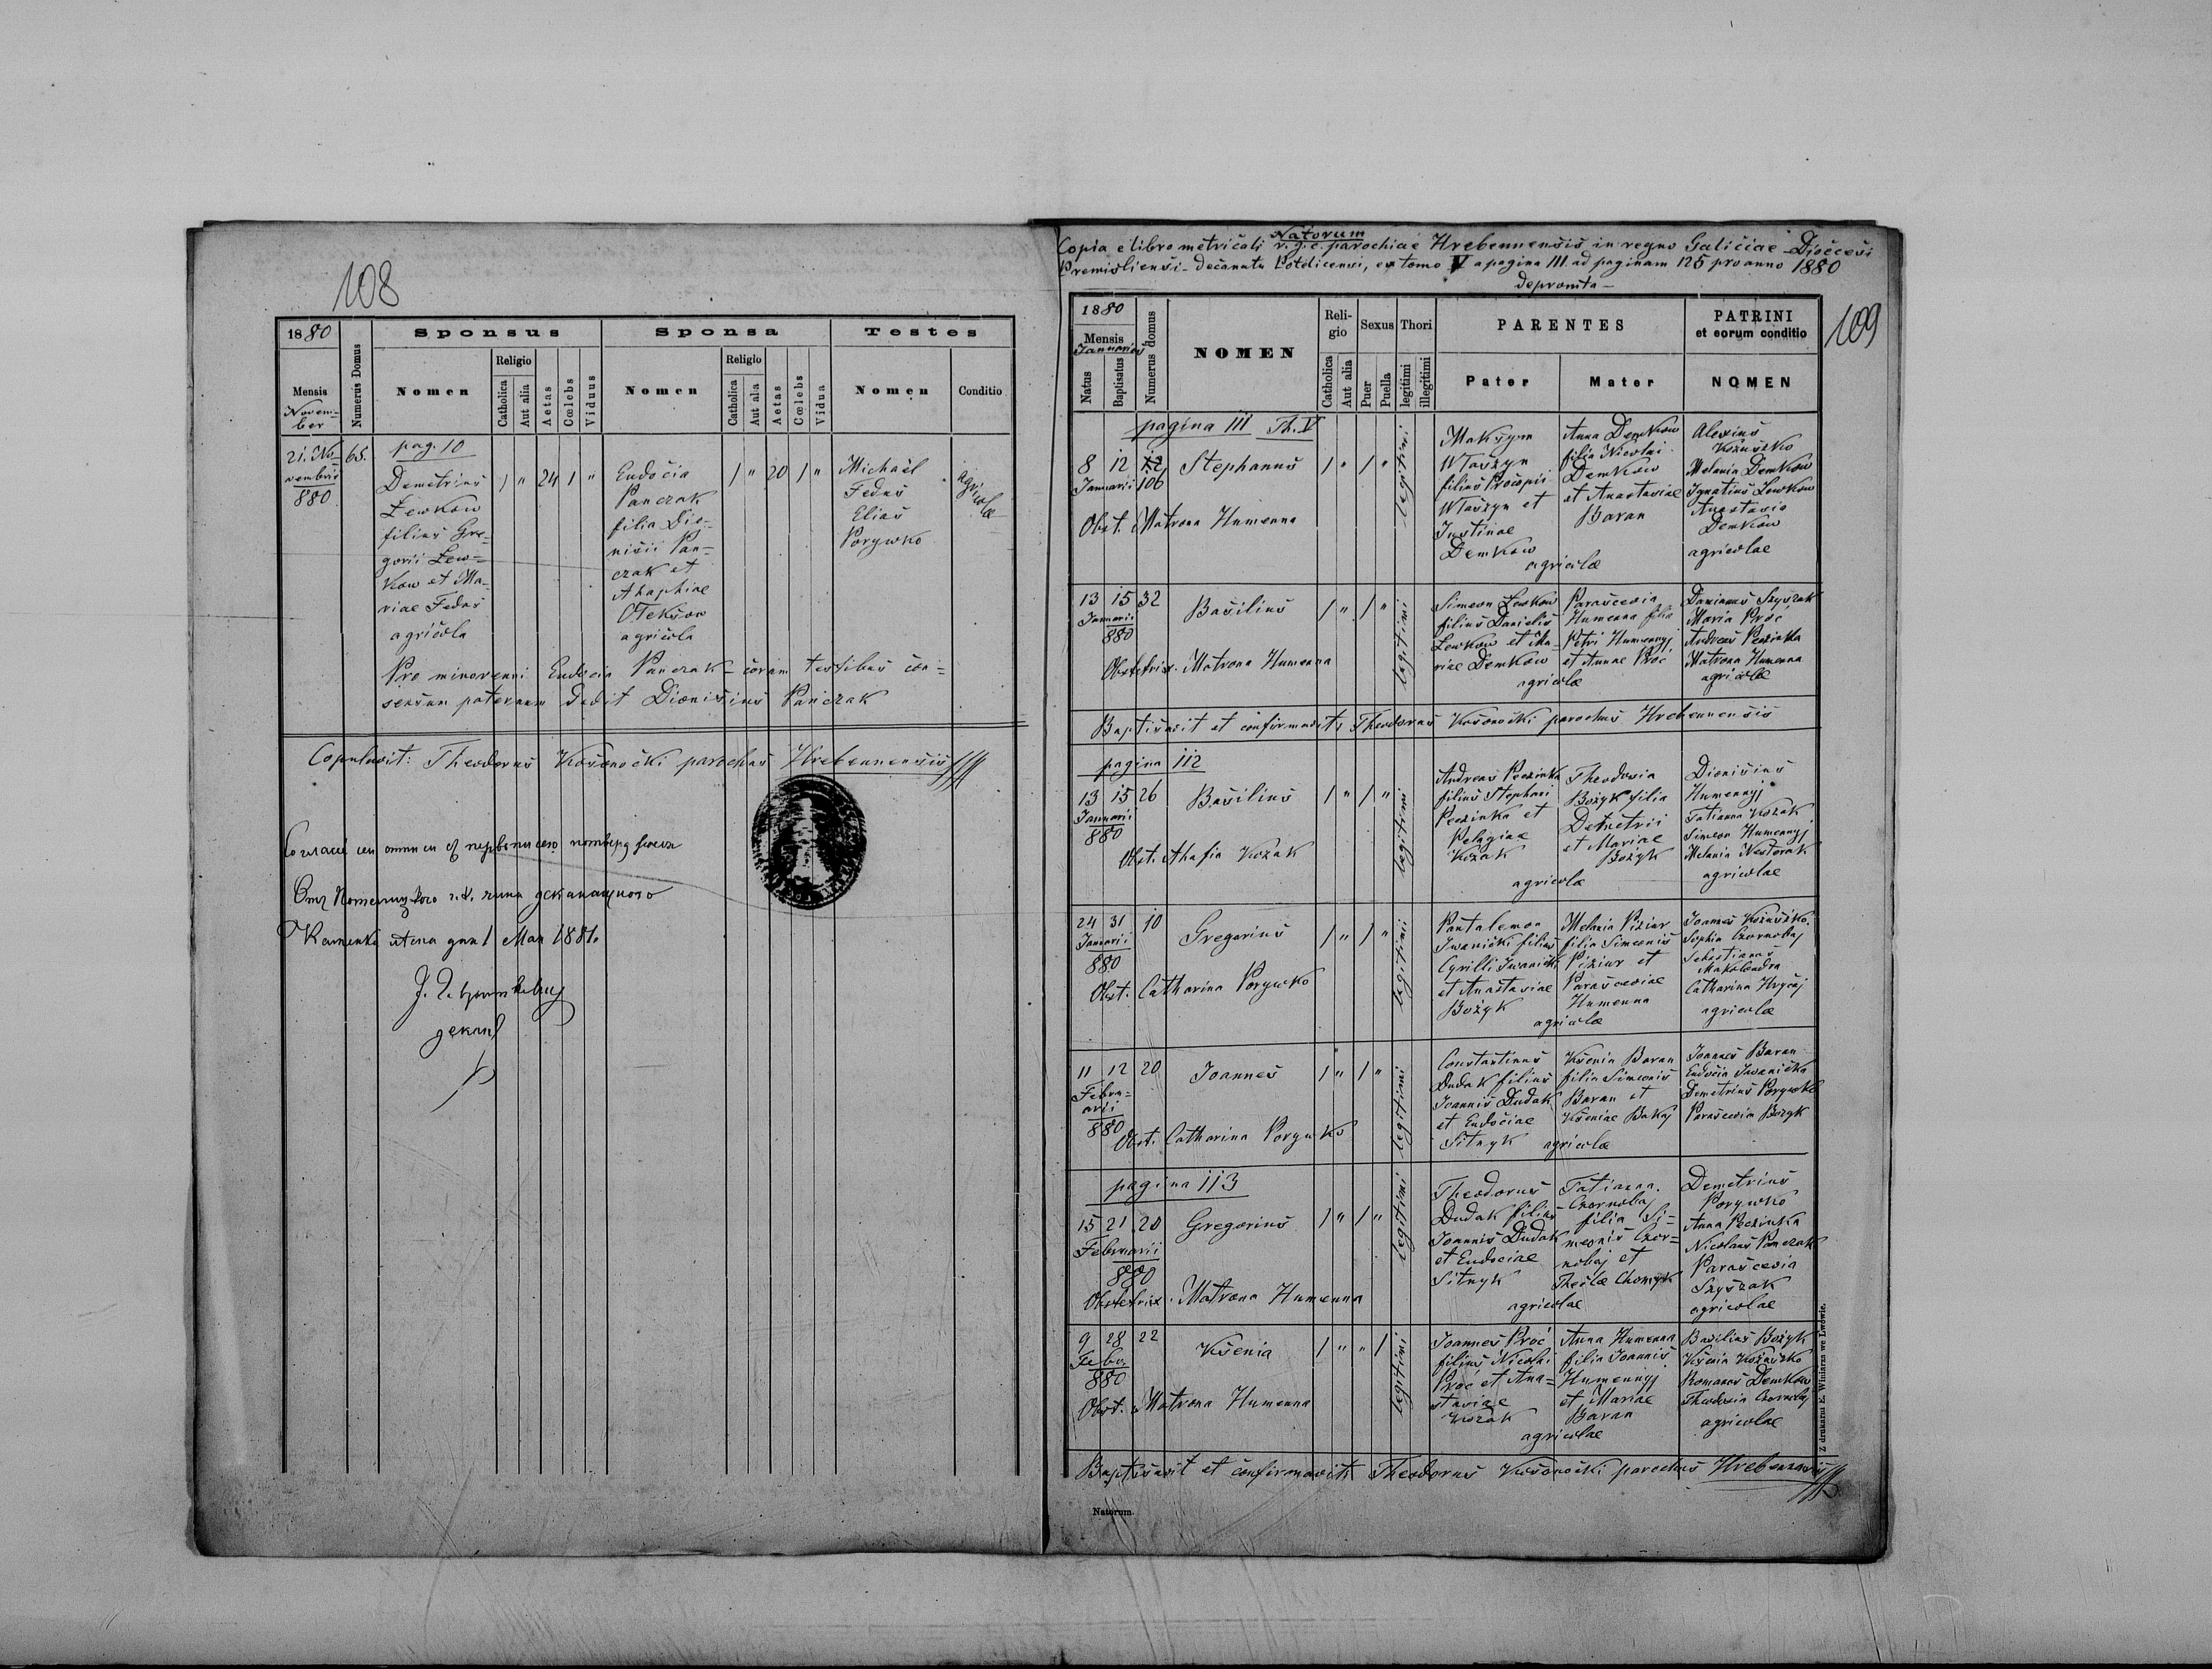 108
1880
Sponsus
Sponsa
Testes
Numerus Domus
Religio
Religio
Mensis
Nomen
Catholica
Aut alia
Aetas
Cœlebs
Viduus
Nomen
Catholica
Aut alia
Aetas
Cœlebs
Vidua
Nomen
Conditio
Novem-
ber
pag. 10
21. No-
vembris
880
65.
Demetrius
Lewkow
filius Gre-
gorii Lew=
kow et Ma-
riae Feduś
agricola
1 " 24 1 "
Eudocia
Panczak
filia Dio-
nisii Pan-
czak et
Ahaphiae
Oleksow
agricola
1 " 20 1 "
Michaël
Feduś
Elias
Porywko
agricolæ
Pro minorenni Eudocia Panczak = coram testibus con=
sensum paternum dedit Dionisius Panczak
Copulavit: Theodorus Kosonocki parochus Hrebennensis
1881.
деканъ
Natorum
Copia e libro metricali r. g. c. parochiae Hrebennensis in regno Galiciae Dioecesi
Premisliensi - Decanatu Potelicensi, ex tomo V a pagina 111 ad paginam 125 pro anno 1880
deprompta -
109
1880
Mensis
Januarius
Natus
Baptisatus
Numerus domus
NOMEN
Reli-
gio
Sexus
Thori
PARENTES
PATRINI
et eorum conditio
Catholica
Aut alia
Puer
Puella
legitimi
illegitimi
Pater
Mater
NOMEN
pagina 111 Th. V
8 12 12
Januarii 106
Stephanus
1 " 1 "
legitimi
Maksym
Wlaszyn
filius Procopii
Wlaszyn et
Justinae
Demkow
agricolæ
Anna Demkow
filia Nicolai
Demkow
et Anastasiae
Baran
Alexius
Kożuszko
Melania Demkow
Ignatius Lewkow
Anastasia
Demkow
agricolae
Obst. Matrona Humenna
13 15 32
Januarii
880
Basilius
1 " 1 "
legitimi
Simeon Lewkow
filius Danielis
Lewkow et Ma-
riae Demkow
agricolæ
Parascevia
Humenna filia
Petri Humennyj
et Annae Proć
Damianus Szyszak
Maria Proć
Andreas Peczinka
Matrona Humenna
agricolæ
Obstetrix. Matrona Humenna
Baptisavit et confirmavit Theodorus Kosonocki parochus Hrebennensis
pagina 112
13 15 26
Januarii
880
Basilius
1 " 1 "
legitimi
Andreas Peczinka
filius Stephani
Peczinka et
Pelagiae
Kozak
agricolæ
Theodosia
Bożyk filia
Demetrii
et Mariae
Bożyk
Dionisius
Humennyj
Tatianna Kozak
Simeon Humennyj
Melania Nestorak
agricolae
Obst. Ahafia Kozak
24 31 10
Januarii
880
Gregorius
1 " 1 "
legitimi
Pantalemon
Iwanicki filius
Cyrilli Iwanicki
et Anastasiae
Bożyk
agricolæ
Melania Piziur
filia Simeonis
Piziur et
Parasceviae
Humenna
Joannes Kożuszko
Sophia Czornobaj
Sebastianus
Makolondra
Catharina Hrycaj
agricolæ
Obst. Catharina Porywko
11 12 20
Febru=
arii
880
Joannes
1 " 1 "
legitimi
Constantinus
Dudak filius
Joannis Dudak
et Eudociae
Sitnyk
agricolæ
Ksenia Baran
filia Simeonis
Baran et
Kseniae Bakaj
Joannes Baran
Eudocia Iwanicka
Demetrius Porywko
Parascevia Bożyk
Obst. Catharina Porywko
pagina 113
15 21 20
Februarii
880
Gregorius
1 " 1 "
legitimi
Theodorus
Dudak filius
Joannis Dudak
et Eudociae
Sitnyk
agricolae
Tatianna
Czornobaj
filia Si=
meonis Czor=
nobaj et
Theclæ Chomyk
Demetrius
Porywko
Anna Peczinka
Nicolaus Panczak
Parascevia
Szyszak
agricolae
Obstetrix. Matrona Humenna
9 28 22
Febr.
880
Ksenia
1 " " 1
legitimi
Joannes Proć
filius Nicolai
Proć et Ana=
stasiae
Kozak
agricolae
Anna Humenna
filia Joannis
Humennyj
et Mariae
Baran
Basilius Bożyk
Ksenia Kożuszko
Romanus Demkow
Theodosia Czornobaj
agricolae
Obst. Matrona Humenna
Baptisavit et confirmavit Theodorus Kosonocki parochus Hrebennensis
Natorum.
Z drukarni E. Winiarza we Lwowie.